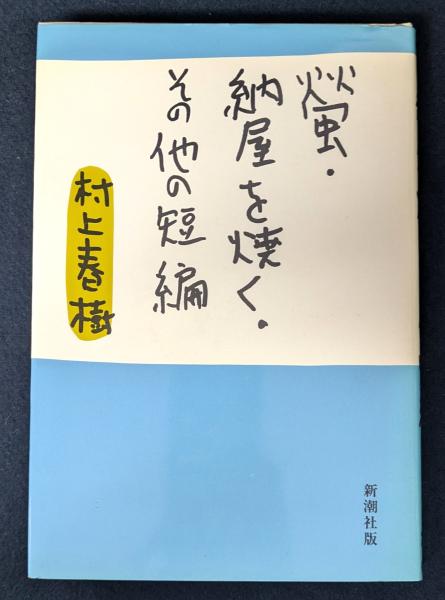 螢・
納屋を焼く・
その他の短編
村上春樹
新潮社版